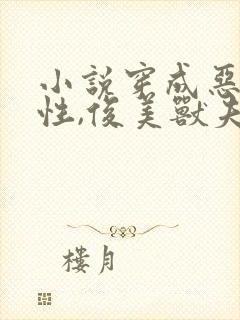 小說穿成惡
性,俊美獸夫
樓月